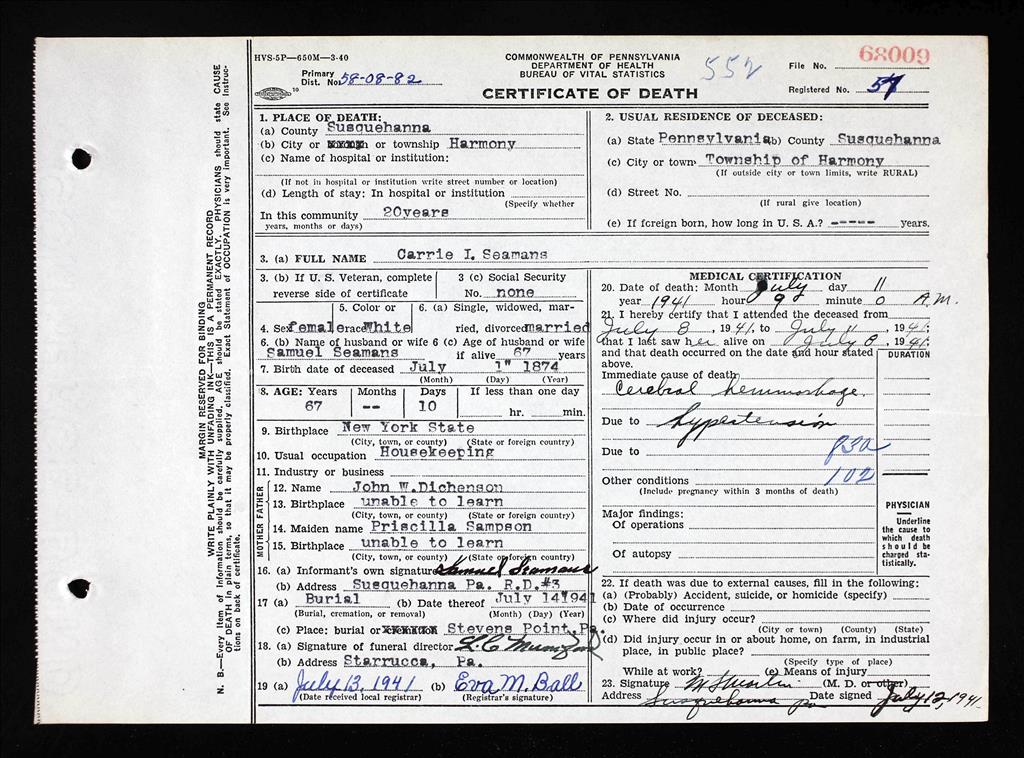 HVS-5P—650M—3-40
Primary
Dist. No. 58-08-82
COMMONWEALTH OF PENNSYLVANIA
DEPARTMENT OF HEALTH
BUREAU OF VITAL STATISTICS
CERTIFICATE OF DEATH
552
68009
File No.
Registered No. 57
MARGIN RESERVED FOR BINDING
WRITE PLAINLY WITH UNFADING INK—THIS IS A PERMANENT RECORD
N. B.—Every item of information should be carefully supplied. AGE should be stated EXACTLY. PHYSICIANS should state CAUSE
OF DEATH in plain terms, so that it may be properly classified. Exact Statement of OCCUPATION is very important. See Instruc-
tions on back of certificate.
1. PLACE OF DEATH:
(a) County Susquehanna
(b) City or or township Harmony
(c) Name of hospital or institution:
(If not in hospital or institution write street number or location)
(d) Length of stay: In hospital or institution
(Specify whether
In this community 20years
years, months or days)
2. USUAL RESIDENCE OF DECEASED:
(a) State Pennsylvania b) County Susquehanna
(c) City or town Township of Harmony
(If outside city or town limits, write RURAL)
(d) Street No.
(If rural give location)
(e) If foreign born, how long in U. S. A.? ----- years.
3. (a) FULL NAME Carrie I. Seamans
3. (b) If U. S. Veteran, complete
reverse side of certificate
3 (c) Social Security
No. none
5. Color or
4. Sex female race White
6. (a) Single, widowed, mar-
ried, divorced married
6. (b) Name of husband or wife
Samuel Seamans
6 (c) Age of husband or wife
if alive 67 years
7. Birth date of deceased July 1" 1874
(Month) (Day) (Year)
8. AGE: Years Months Days If less than one day
67 -- 10 hr. min.
9. Birthplace New York State
(City, town, or county) (State or foreign country)
10. Usual occupation Housekeeping
11. Industry or business
FATHER
12. Name John W.Dichenson
13. Birthplace unable to learn
(City, town, or county) (State or foreign country)
MOTHER
14. Maiden name Priscilla Sampson
15. Birthplace unable to learn
(City, town, or county) (State or foreign country)
16. (a) Informant's own signature Samuel Seamans
(b) Address Susquehanna Pa. R.D.#3
17 (a) Burial (b) Date thereof July 14"1941
(Burial, cremation, or removal) (Month) (Day) (Year)
(c) Place: burial or cremation Stevens Point,Pa.
18. (a) Signature of funeral director
(b) Address Starrucca, Pa.
19 (a) July 13, 1941 (b) Eva M. Ball
(Date received local registrar) (Registrar's signature)
MEDICAL CERTIFICATION
20. Date of death: Month July day 11
year 1941 hour 9 minute 0 A.M.
21. I hereby certify that I attended the deceased from
July 8, 1941, to July 11, 1941;
that I last saw her alive on July 8, 1941;
and that death occurred on the date and hour stated
above.
DURATION
Immediate cause of death
Cerebral hemmorhage.
Due to hypertension
Due to 83a
102
Other conditions
(Include pregnancy within 3 months of death)
Major findings:
Of operations
Of autopsy
PHYSICIAN
Underline
the cause to
which death
should be
charged sta-
tistically.
22. If death was due to external causes, fill in the following:
(a) (Probably) Accident, suicide, or homicide (specify)
(b) Date of occurrence
(c) Where did injury occur?
(City or town) (County) (State)
(d) Did injury occur in or about home, on farm, in industrial
place, in public place?
(Specify type of place)
While at work? (e) Means of injury
23. Signature (M. D. or other)
Address Susquehanna Pa Date signed July 12, 1941.